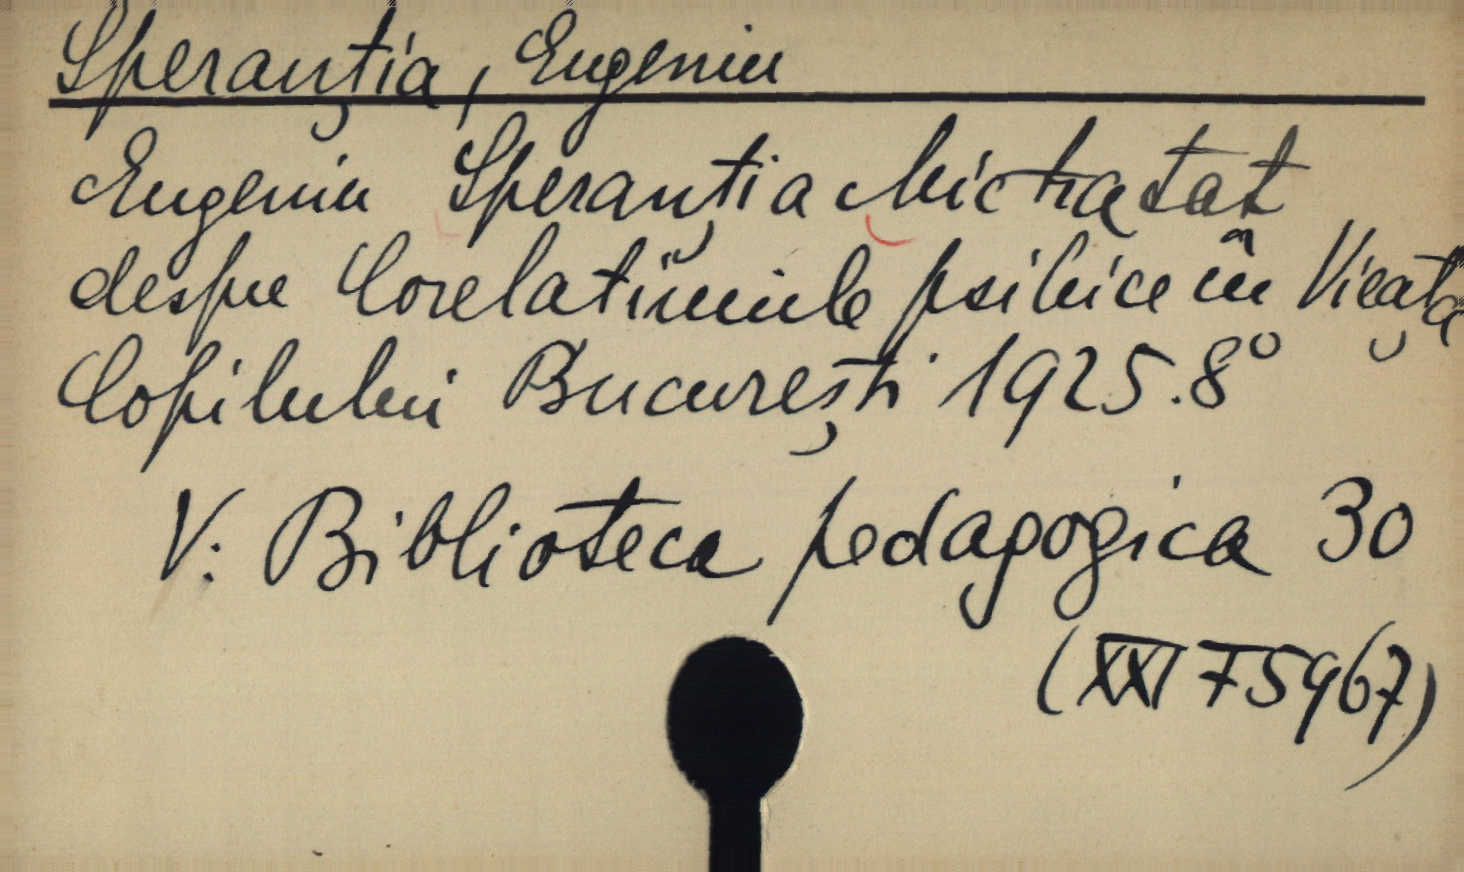 Speranţia, Eugeniu
Eugeniu Speranţia Mic tratat
despre Corelaţiunile psihice în Vieaţa
Copilului Bucureşti 1925.8°
V: Biblioteca pedagogica 30
(XXI F5967)